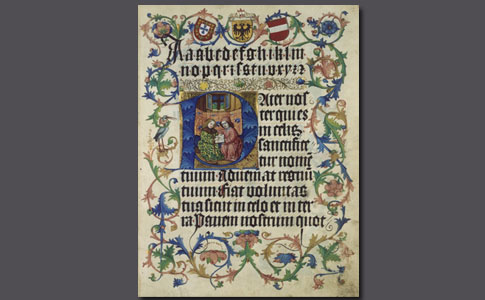 A a b c d e f g h i k l m
n o p q r s t u v x y z
Pater nos
ter qui es
in celis
sanctifice
tur nomē
tuum Adueniat regnū
tuum Fiat voluntas
tua sicut in celo et in ter
ra Panem nostrum quot